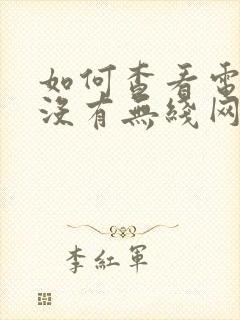 如何查看電
沒有無綫网
李紅軍